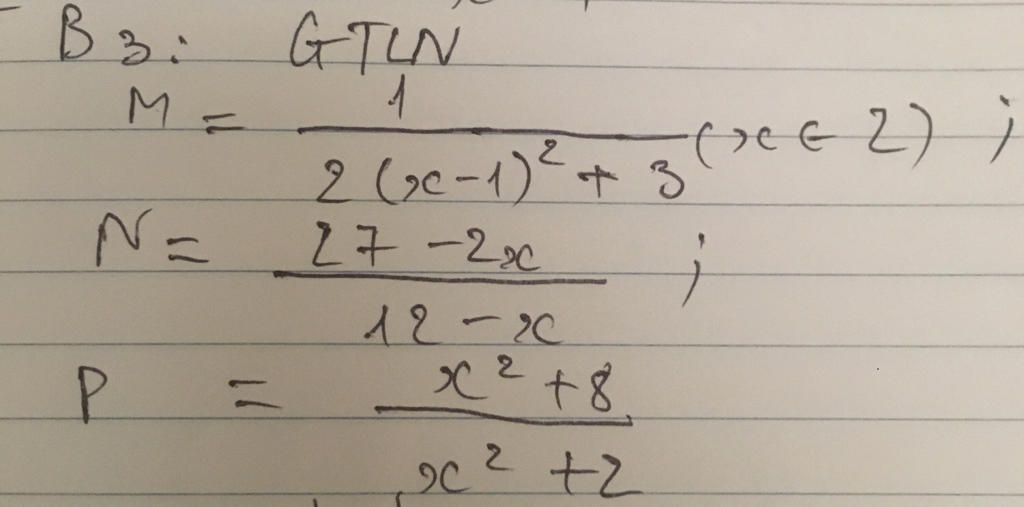 B3: GTLN
M = 1 / (2(x-1)² + 3) (x ∈ Z) ;
N = (27 - 2x) / (12 - x) ;
P = (x² + 8) / (x² + 2)